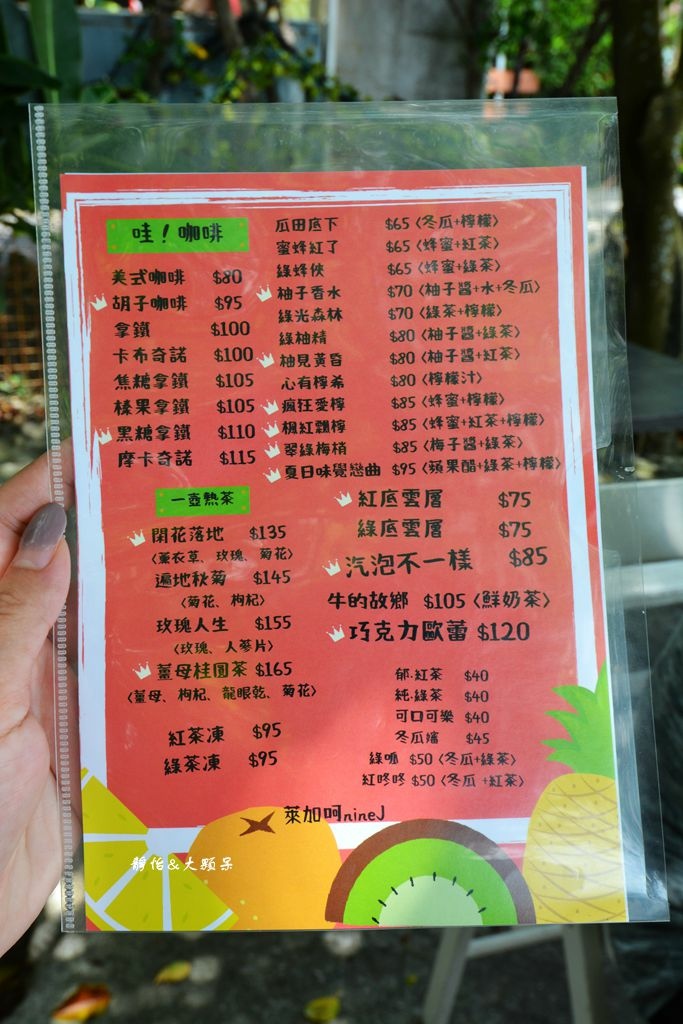 哇！咖啡
美式咖啡 $80
胡子咖啡 $95
拿鐵 $100
卡布奇諾 $100
焦糖拿鐵 $105
榛果拿鐵 $105
黑糖拿鐵 $110
摩卡奇諾 $115
一壺熱茶
閑花落地 $135
〈薰衣草、玫瑰、菊花〉
遍地秋菊 $145
〈菊花、枸杞〉
玫瑰人生 $155
〈玫瑰、人蔘片〉
薑母桂圓茶 $165
〈薑母、枸杞、龍眼乾、菊花〉
紅茶凍 $95
綠茶凍 $95
瓜田底下 $65〈冬瓜+檸檬〉
蜜蜂紅了 $65〈蜂蜜+紅茶〉
綠蜂俠 $65〈蜂蜜+綠茶〉
柚子香水 $70〈柚子醬+水+冬瓜〉
綠光森林 $70〈綠茶+檸檬〉
綠柚精 $80〈柚子醬+綠茶〉
柚見黃昏 $80〈柚子醬+紅茶〉
心有檸希 $80〈檸檬汁〉
瘋狂愛檸 $85〈蜂蜜+檸檬〉
楓紅飄檸 $85〈蜂蜜+紅茶+檸檬〉
翠綠梅梢 $85〈梅子醬+綠茶〉
夏日味覺戀曲 $95〈蘋果醋+綠茶+檸檬〉
紅底雲層 $75
綠底雲層 $75
汽泡不一樣 $85
牛的故鄉 $105〈鮮奶茶〉
巧克力歐蕾 $120
郁.紅茶 $40
純.綠茶 $40
可口可樂 $40
冬瓜嬸 $45
綠呱 $50〈冬瓜+綠茶〉
紅咚咚 $50〈冬瓜+紅茶〉
萊加呵nineJ
靜怡&大顆呆